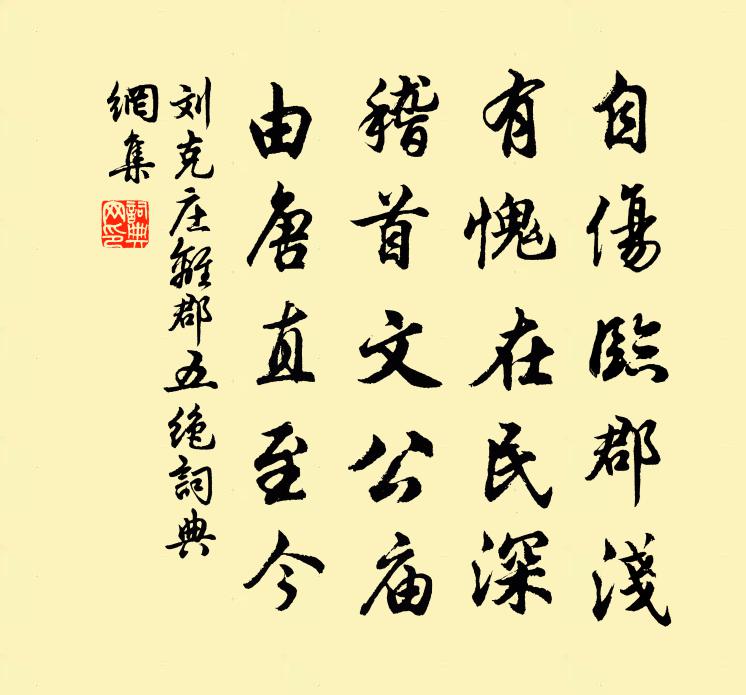 自傷臨郡淺
有愧在民深
稽首文公庙
由唐直至今
刘克庄離郡五绝詞典
網集
詞典网印